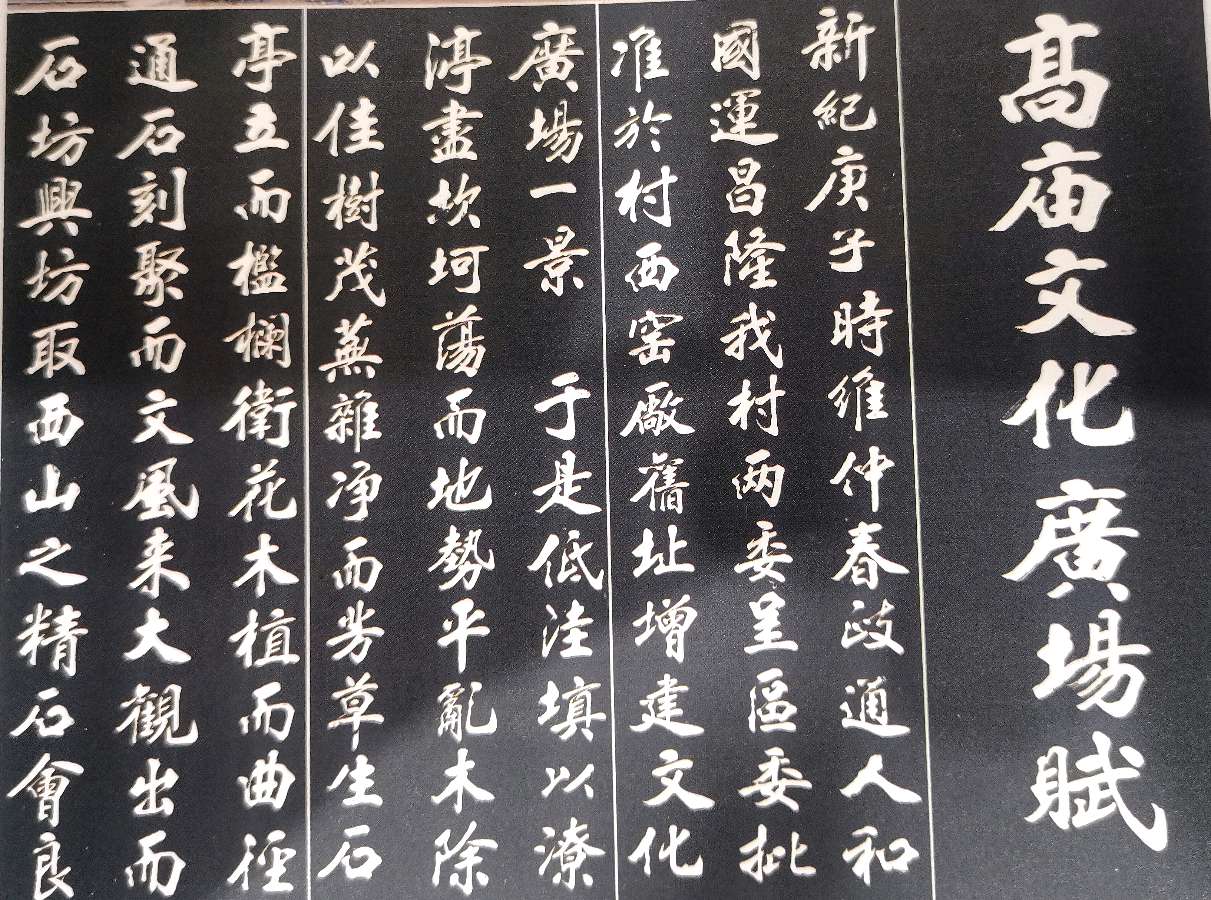 高庙文化廣場賦
新紀庚子時維仲春政通人和
國運昌隆我村两委呈區委批
准於村西窑廠舊址增建文化
廣場一景 于是低洼填以潦
渟盡坎坷蕩而地勢平亂木除
以佳樹茂蕪雜净而芳草生石
亭立而檻欄衛花木植而曲徑
通石刻聚而文風来大觀出而
石坊興坊取西山之精石會良